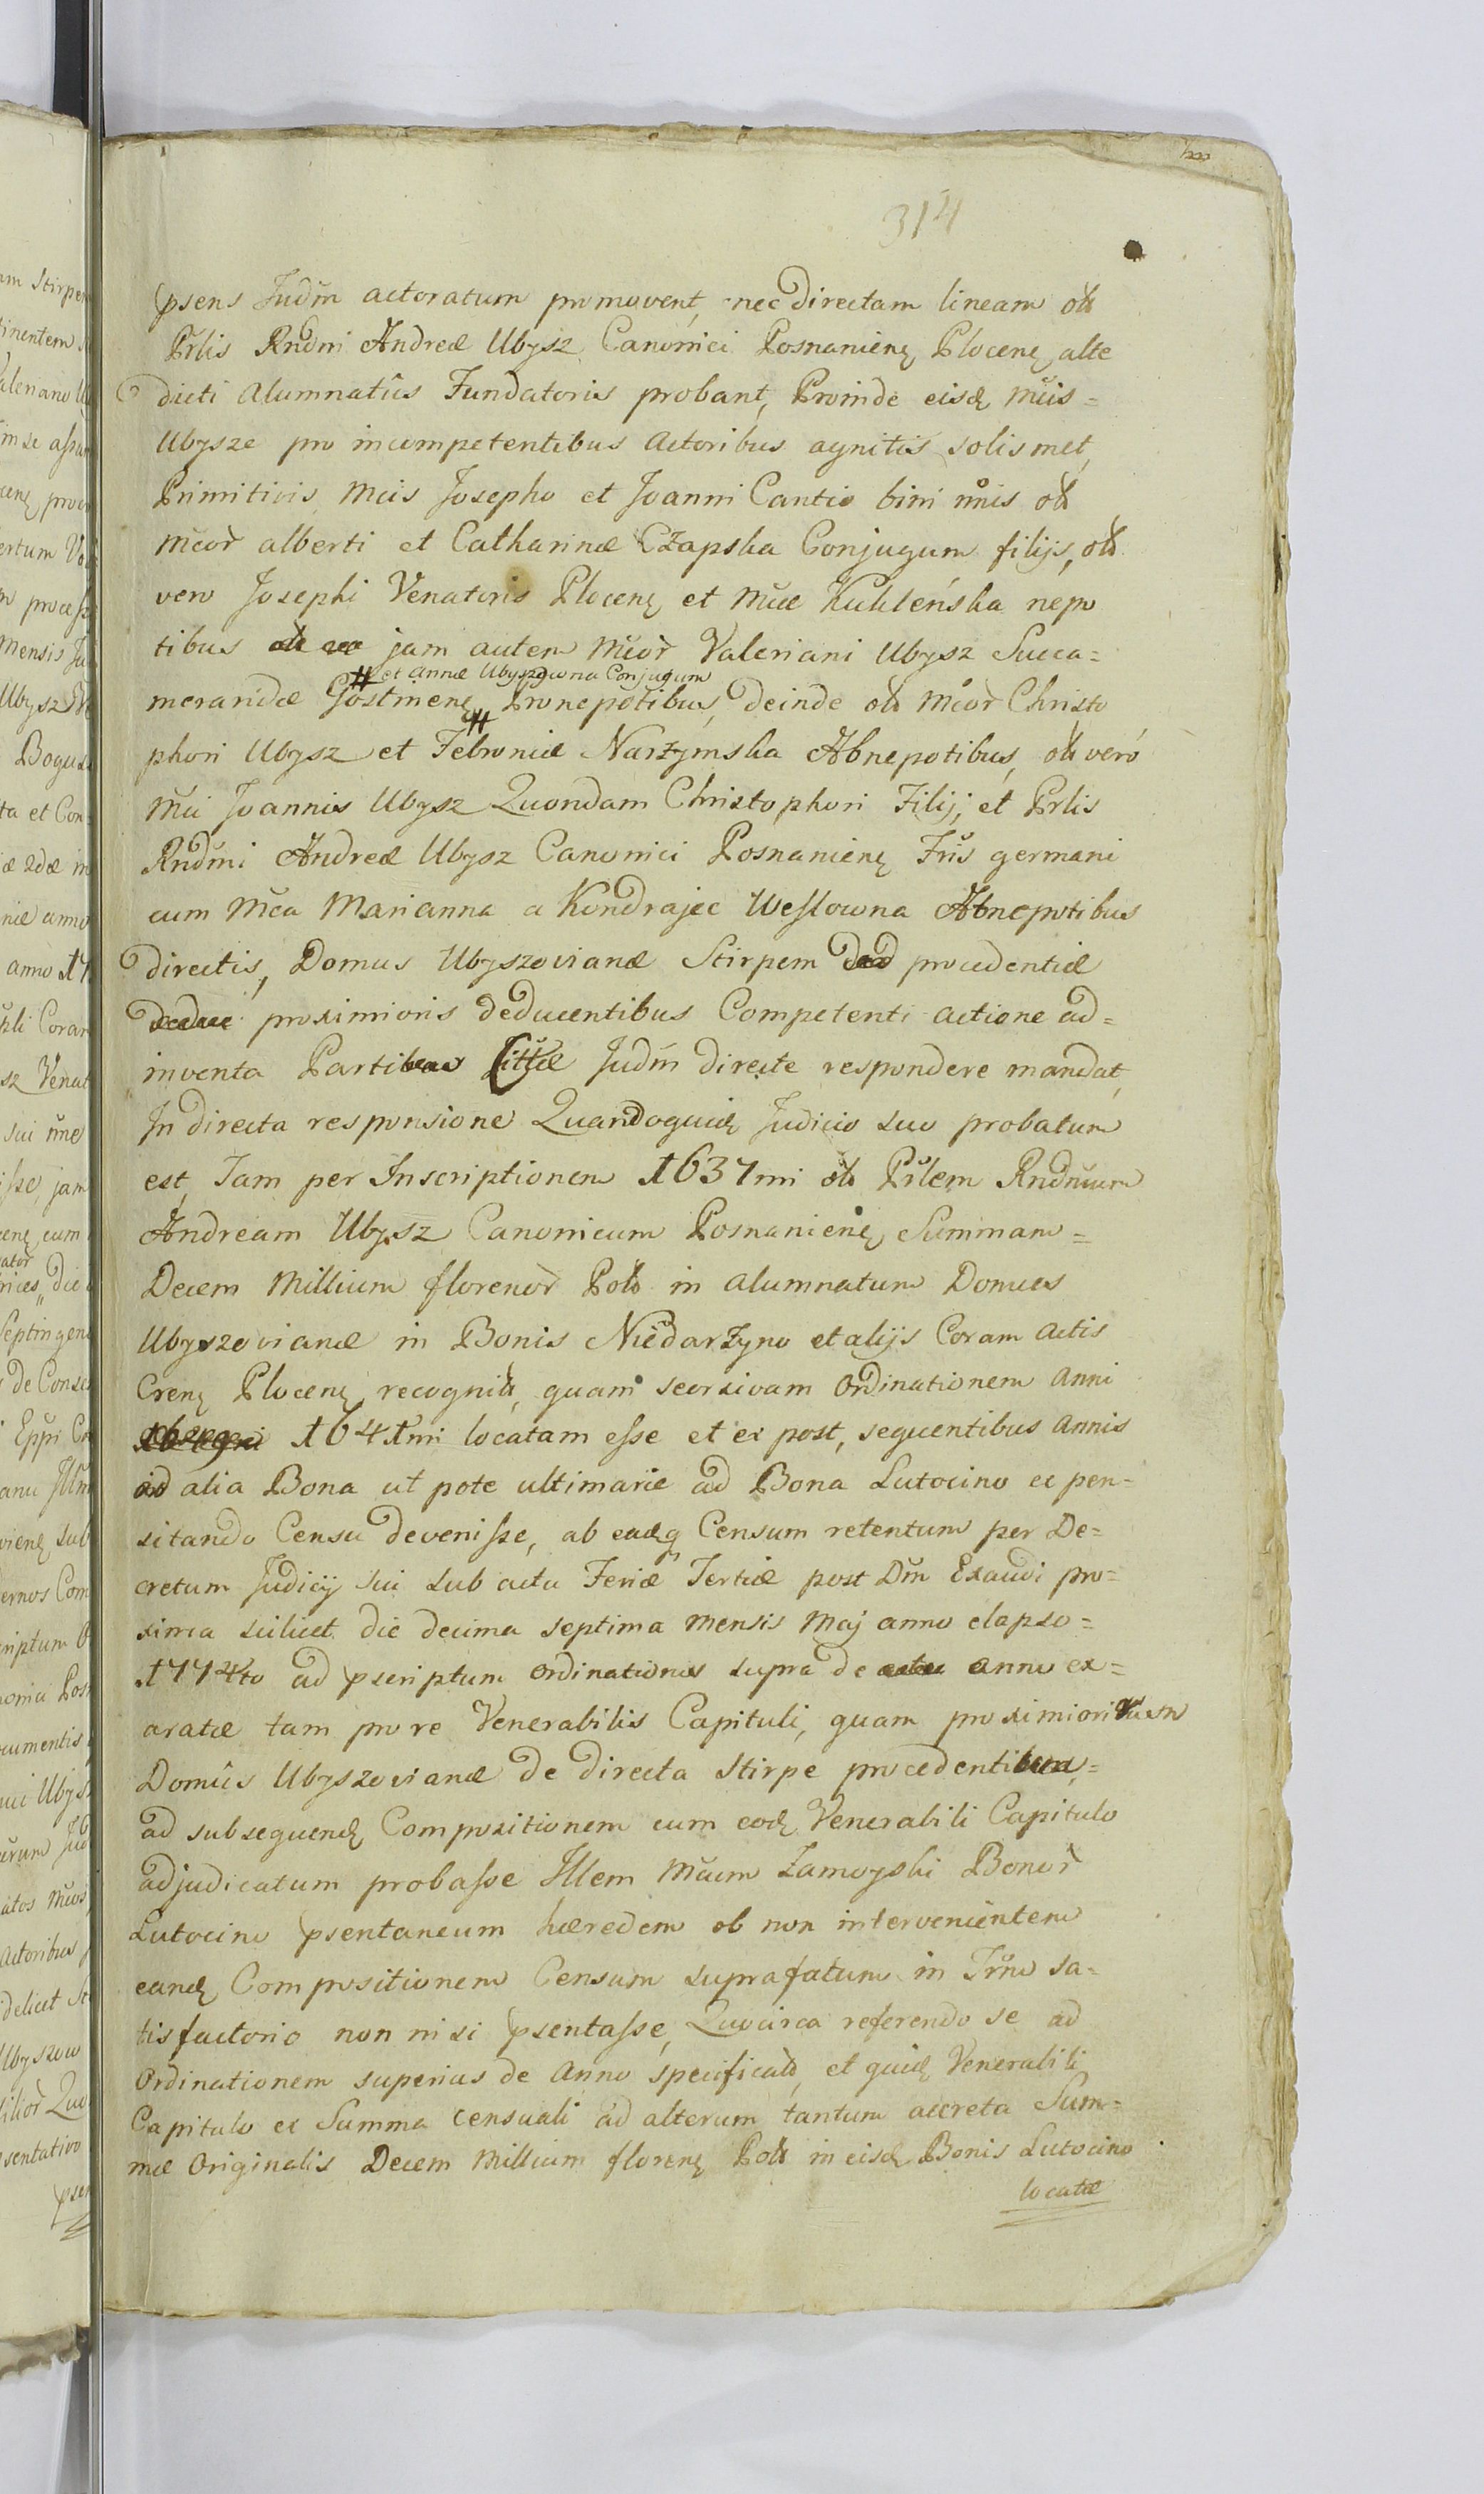 314
psens Judm̃ actoratum promovent, nec directam lineam olȝ
Prl̃is Rndm̃i Andreæ Ubysz Canonici Posnanienę Plocenę alte
dicti Alumnatûs Fundatoris probant, Proinde eisdȩ Mc̃is =
Ubysze pro incompetentibus Actoribus agnitis solismet,
Primitivis Mc̃is Josepho et Joanni Cantio bini nñis olȝ
Mc̃or̃ Alberti et Catharinæ Czapska Conjugum filijs, olȝ
vero Josephi Venatoris Plocenę et Mc̃æ Kukleńska nepo
tibus jam autem Mc̃or̃ Valeriani Ubysz Succa =
# et Annæ Ubyszowna Conjugum
meraridæ Gostinenę # Pronepotibus, deinde olȝ Mc̃or̃ Christo
phori Ubysz et Febroniæ Narzymska Abnepotibus, olȝ verò
Mc̃i Joannis Ubysz Quondam Christophori Filij, et Prl̃is
Rndm̃i Andreæ Ubysz Canonici Posnanienę Frĩs germani
cum Mc̃a Marianna a Kondrajec Weslowna Abnepotibus
directis, Domus Ubyszovianæ Stirpem procedentiæ
proximioris deducentibus Competenti actione ad =
inventa Partibus Judm̃ directe respondere mandat,
In directa responsione Quandoquidȩ Judicio suo probatum
est, Jam per Inscriptionem 1637mi olȝ Prl̃em Rndm̃um
Andream Ubysz Canonicum Posnanienę Summam =
Decem Millium florenor̃ Polȝ in Alumnatum Domus
Ubyszovianæ in Bonis Niedarzyno et alijs Coram Actis
Crenę Plocenę recognitȝ, quam seorsivam Ordinationem Anni
1641mi locatam eſse et ex post, sequentibus Annis
ad alia Bona ut pote ultimarie ad Bona Lutocino ex pen =
sitando Censu deveniſse, ab eadȩq Censum retentum per De =
cretum Judicij sui sub actu Feriæ Tertiæ post Dm̃ Exaudi pro =
xima scilicet die decima septima Mensis Maj anno elapso =
1774to ad pscriptum Ordinationis supra de anno ex =
aratæ tam pro re Venerabilis Capituli, quam proximiorum
Domûs Ubyszovianæ de directa Stirpe procedentium, =
ad subsequendȩ Compositionem cum eodȩ Venerabili Capitulo
adjudicatum probaſse Illem Mc̃um Zamoyski Bonor̃
Lutocino psentaneum hæredem ob non intervenientem
eandȩ Compositionem Censum suprafatum in Tr̃no sa =
tisfactorio non nisi psentaſse, Quocirca referendo se ad
Ordinationem superius de Anno specificatȝ, et quidȩ Venerabili
Capitulo ex Summa censuali ad alterum tantum accreta Sum =
mæ Originalis Decem Millium florenę Polȝ in eisdȩ Bonis Lutocino
locatæ